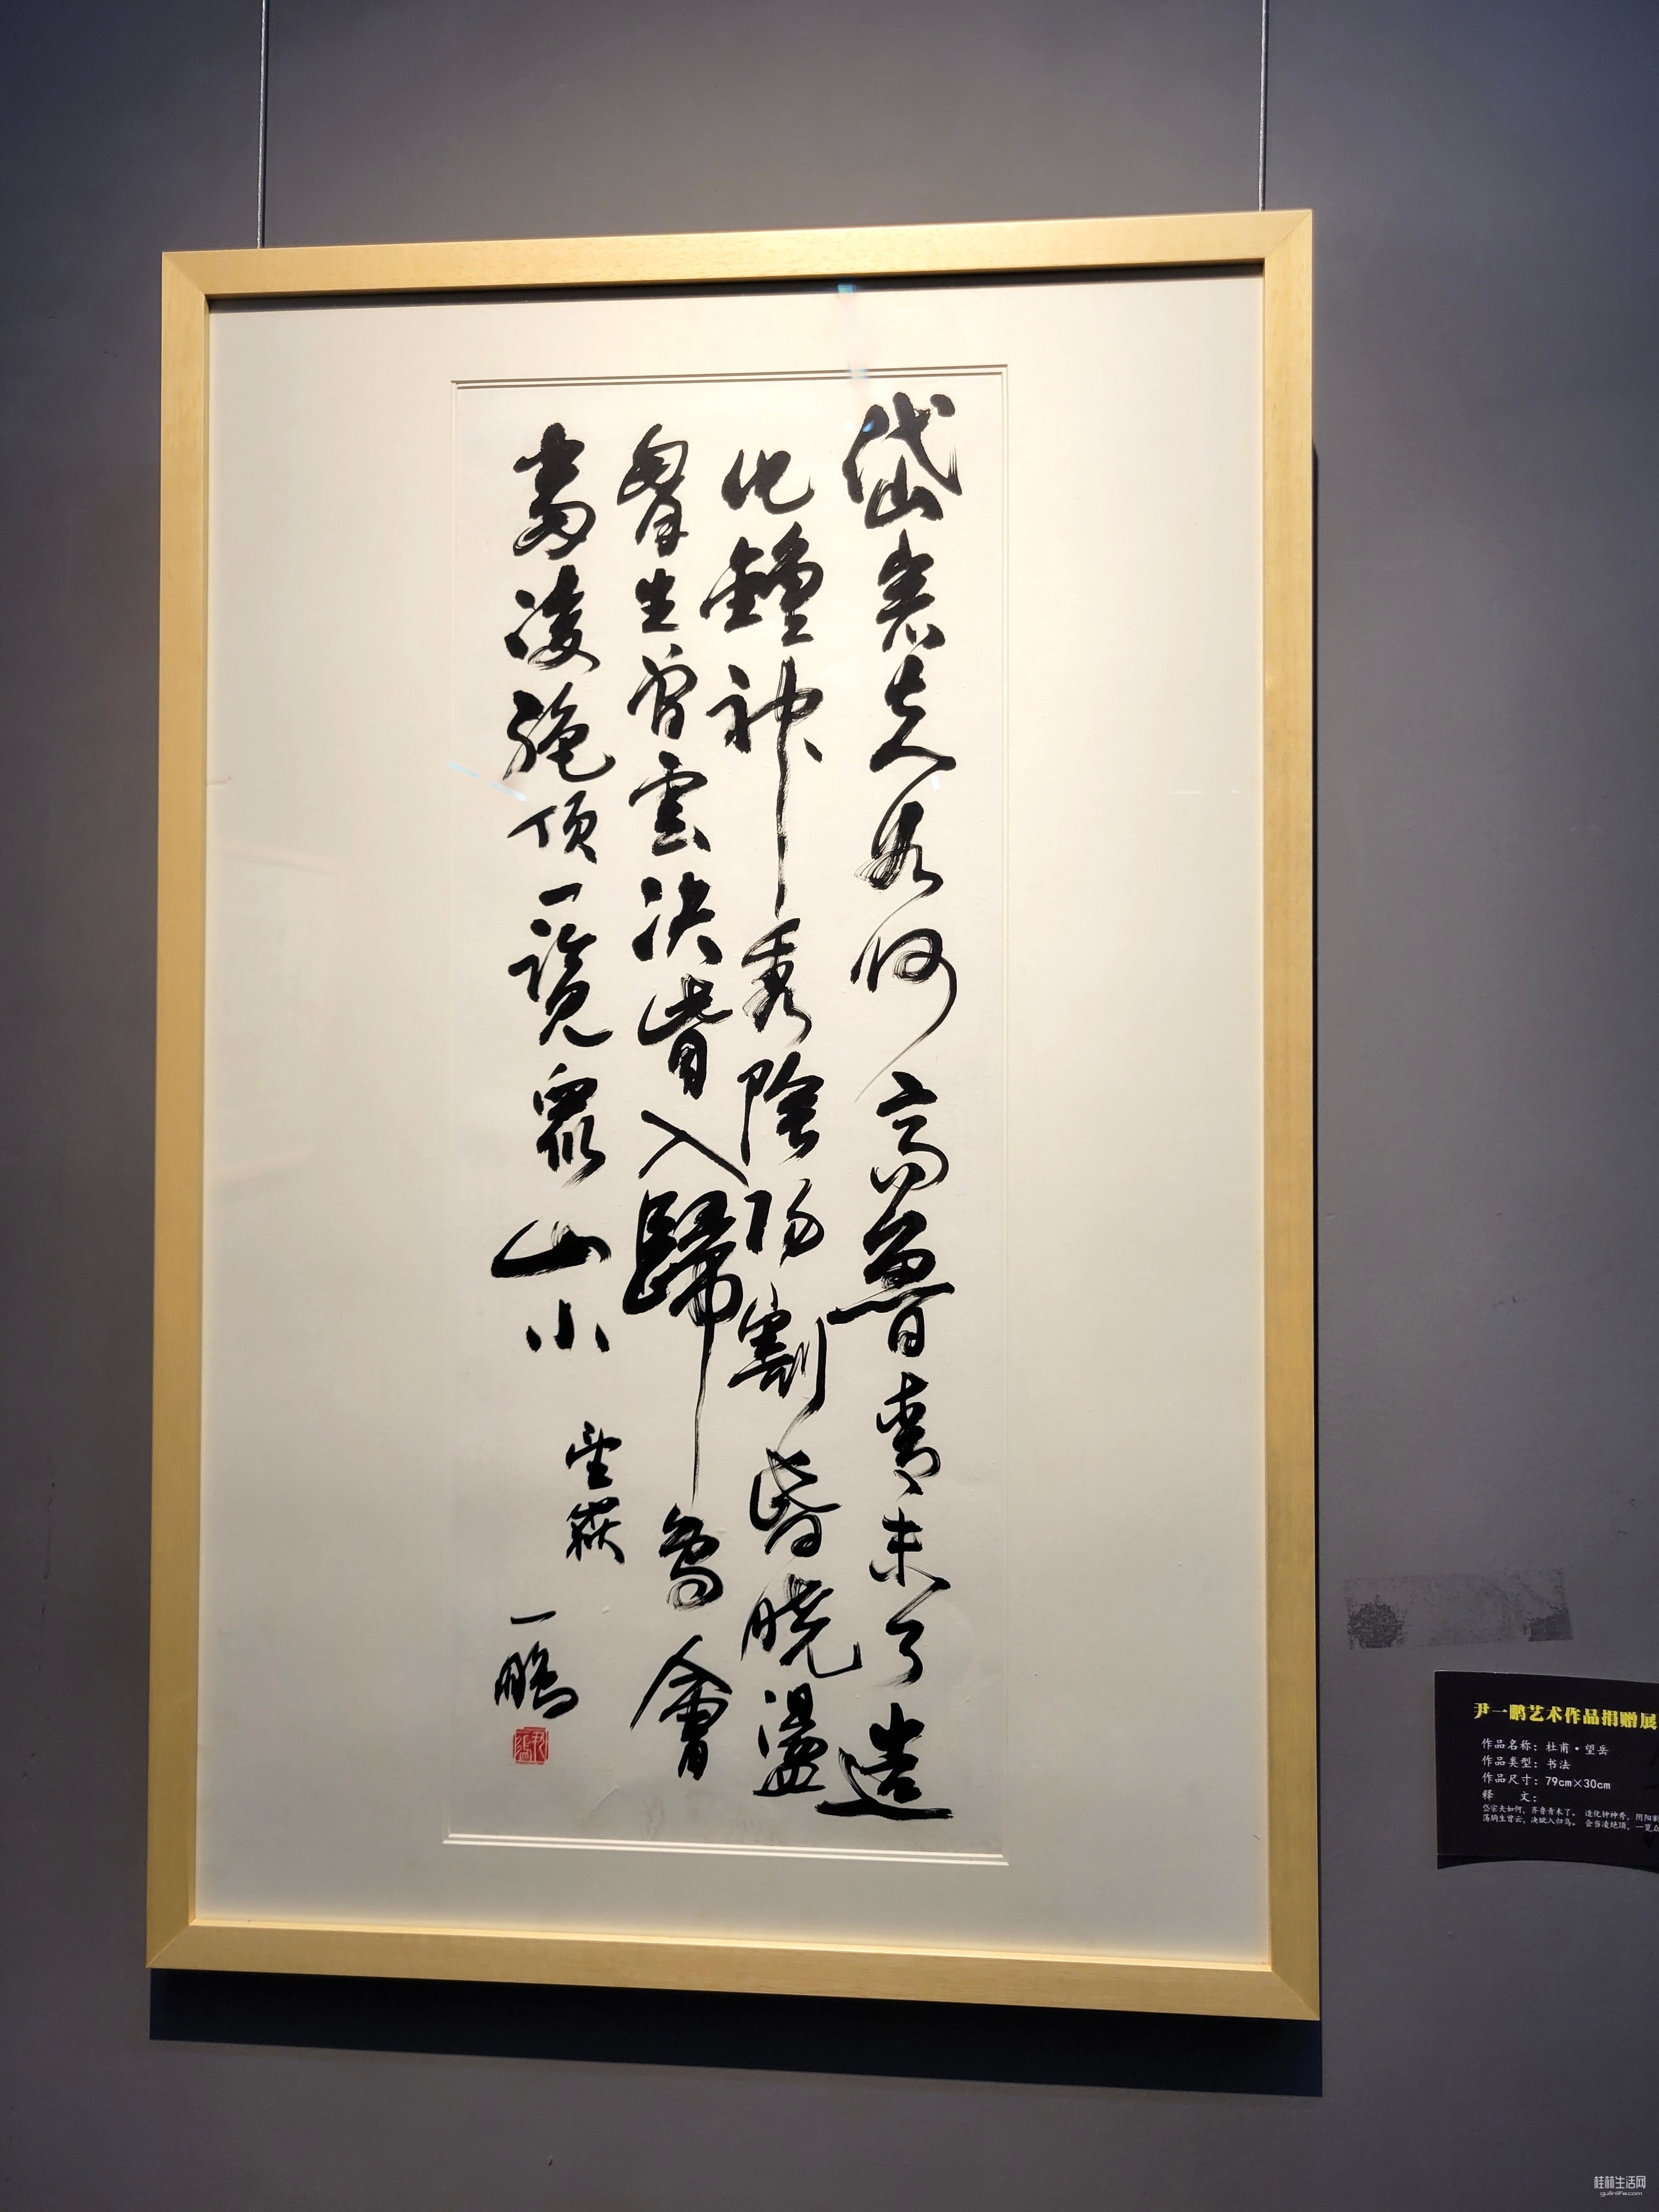 岱宗夫如何齊魯青未了造
化鍾神秀陰陽割昏曉盪
胷生曾雲決眥入歸鳥會
當凌絕頂一覽衆山小
望嶽
一鵬
尹一鹏艺术作品捐赠展
作品名称：杜甫·望岳
作品类型：书法
作品尺寸：79cm×30cm
释 文：
岱宗夫如何，齐鲁青未了。 造化钟神秀，阴阳割
荡胸生曾云，决眦入归鸟。 会当凌绝顶，一览众
桂林生活网
guilinlife.com